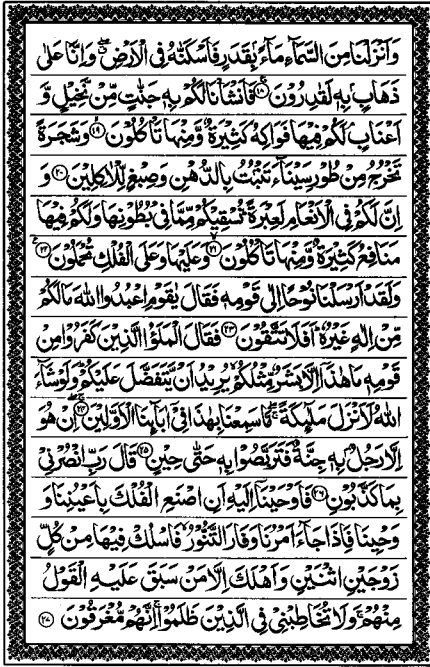 وَاَنْزَلْنَا مِنَ السَّمَآءِ مَآءًۢ بِقَدَرٍ فَاَسْكَنّٰهُ فِی الْاَرْضِ ۖۗ وَاِنَّا عَلٰی
ذَهَابٍۭ بِهٖ لَقٰدِرُوْنَ ۚ﴿۱۸﴾ فَاَنْشَاْنَا لَكُمْ بِهٖ جَنّٰتٍ مِّنْ نَّخِیْلٍ وَّ
اَعْنَابٍ ۘ لَكُمْ فِیْهَا فَوَاكِهُ كَثِیْرَةٌ وَّمِنْهَا تَاْكُلُوْنَ ۙ﴿۱۹﴾ وَشَجَرَةً
تَخْرُجُ مِنْ طُوْرِ سَیْنَآءَ تَنْۢبُتُ بِالدُّهْنِ وَصِبْغٍ لِّلْاٰكِلِیْنَ ﴿۲۰﴾ وَ
اِنَّ لَكُمْ فِی الْاَنْعَامِ لَعِبْرَةً ؕ نُسْقِیْكُمْ مِّمَّا فِیْ بُطُوْنِهَا وَلَكُمْ فِیْهَا
مَنَافِعُ كَثِیْرَةٌ وَّمِنْهَا تَاْكُلُوْنَ ۙ﴿۲۱﴾ وَعَلَیْهَا وَعَلَی الْفُلْكِ تُحْمَلُوْنَ ﴿۲۲﴾ ع
وَلَقَدْ اَرْسَلْنَا نُوْحًا اِلٰی قَوْمِهٖ فَقَالَ یٰقَوْمِ اعْبُدُوا اللّٰهَ مَا لَكُمْ
مِّنْ اِلٰهٍ غَیْرُهٗ ؕ اَفَلَا تَتَّقُوْنَ ﴿۲۳﴾ فَقَالَ الْمَلَؤُا الَّذِیْنَ كَفَرُوْا مِنْ
قَوْمِهٖ مَا هٰذَاۤ اِلَّا بَشَرٌ مِّثْلُكُمْ ۙ یُرِیْدُ اَنْ یَّتَفَضَّلَ عَلَیْكُمْ ؕ وَلَوْ شَآءَ
اللّٰهُ لَاَنْزَلَ مَلٰٓئِكَةً ۖۚ مَّا سَمِعْنَا بِهٰذَا فِیْۤ اٰبَآئِنَا الْاَوَّلِیْنَ ۚ﴿۲۴﴾ اِنْ هُوَ
اِلَّا رَجُلٌۢ بِهٖ جِنَّةٌ فَتَرَبَّصُوْا بِهٖ حَتّٰی حِیْنٍ ﴿۲۵﴾ قَالَ رَبِّ انْصُرْنِیْ
بِمَا كَذَّبُوْنِ ﴿۲۶﴾ فَاَوْحَیْنَاۤ اِلَیْهِ اَنِ اصْنَعِ الْفُلْكَ بِاَعْیُنِنَا وَ
وَحْیِنَا فَاِذَا جَآءَ اَمْرُنَا وَفَارَ التَّنُّوْرُ ۙ فَاسْلُكْ فِیْهَا مِنْ كُلٍّ
زَوْجَیْنِ اثْنَیْنِ وَاَهْلَكَ اِلَّا مَنْ سَبَقَ عَلَیْهِ الْقَوْلُ
مِنْهُمْ ۚ وَلَا تُخَاطِبْنِیْ فِی الَّذِیْنَ ظَلَمُوْا ۚ اِنَّهُمْ مُّغْرَقُوْنَ ﴿۲۷﴾